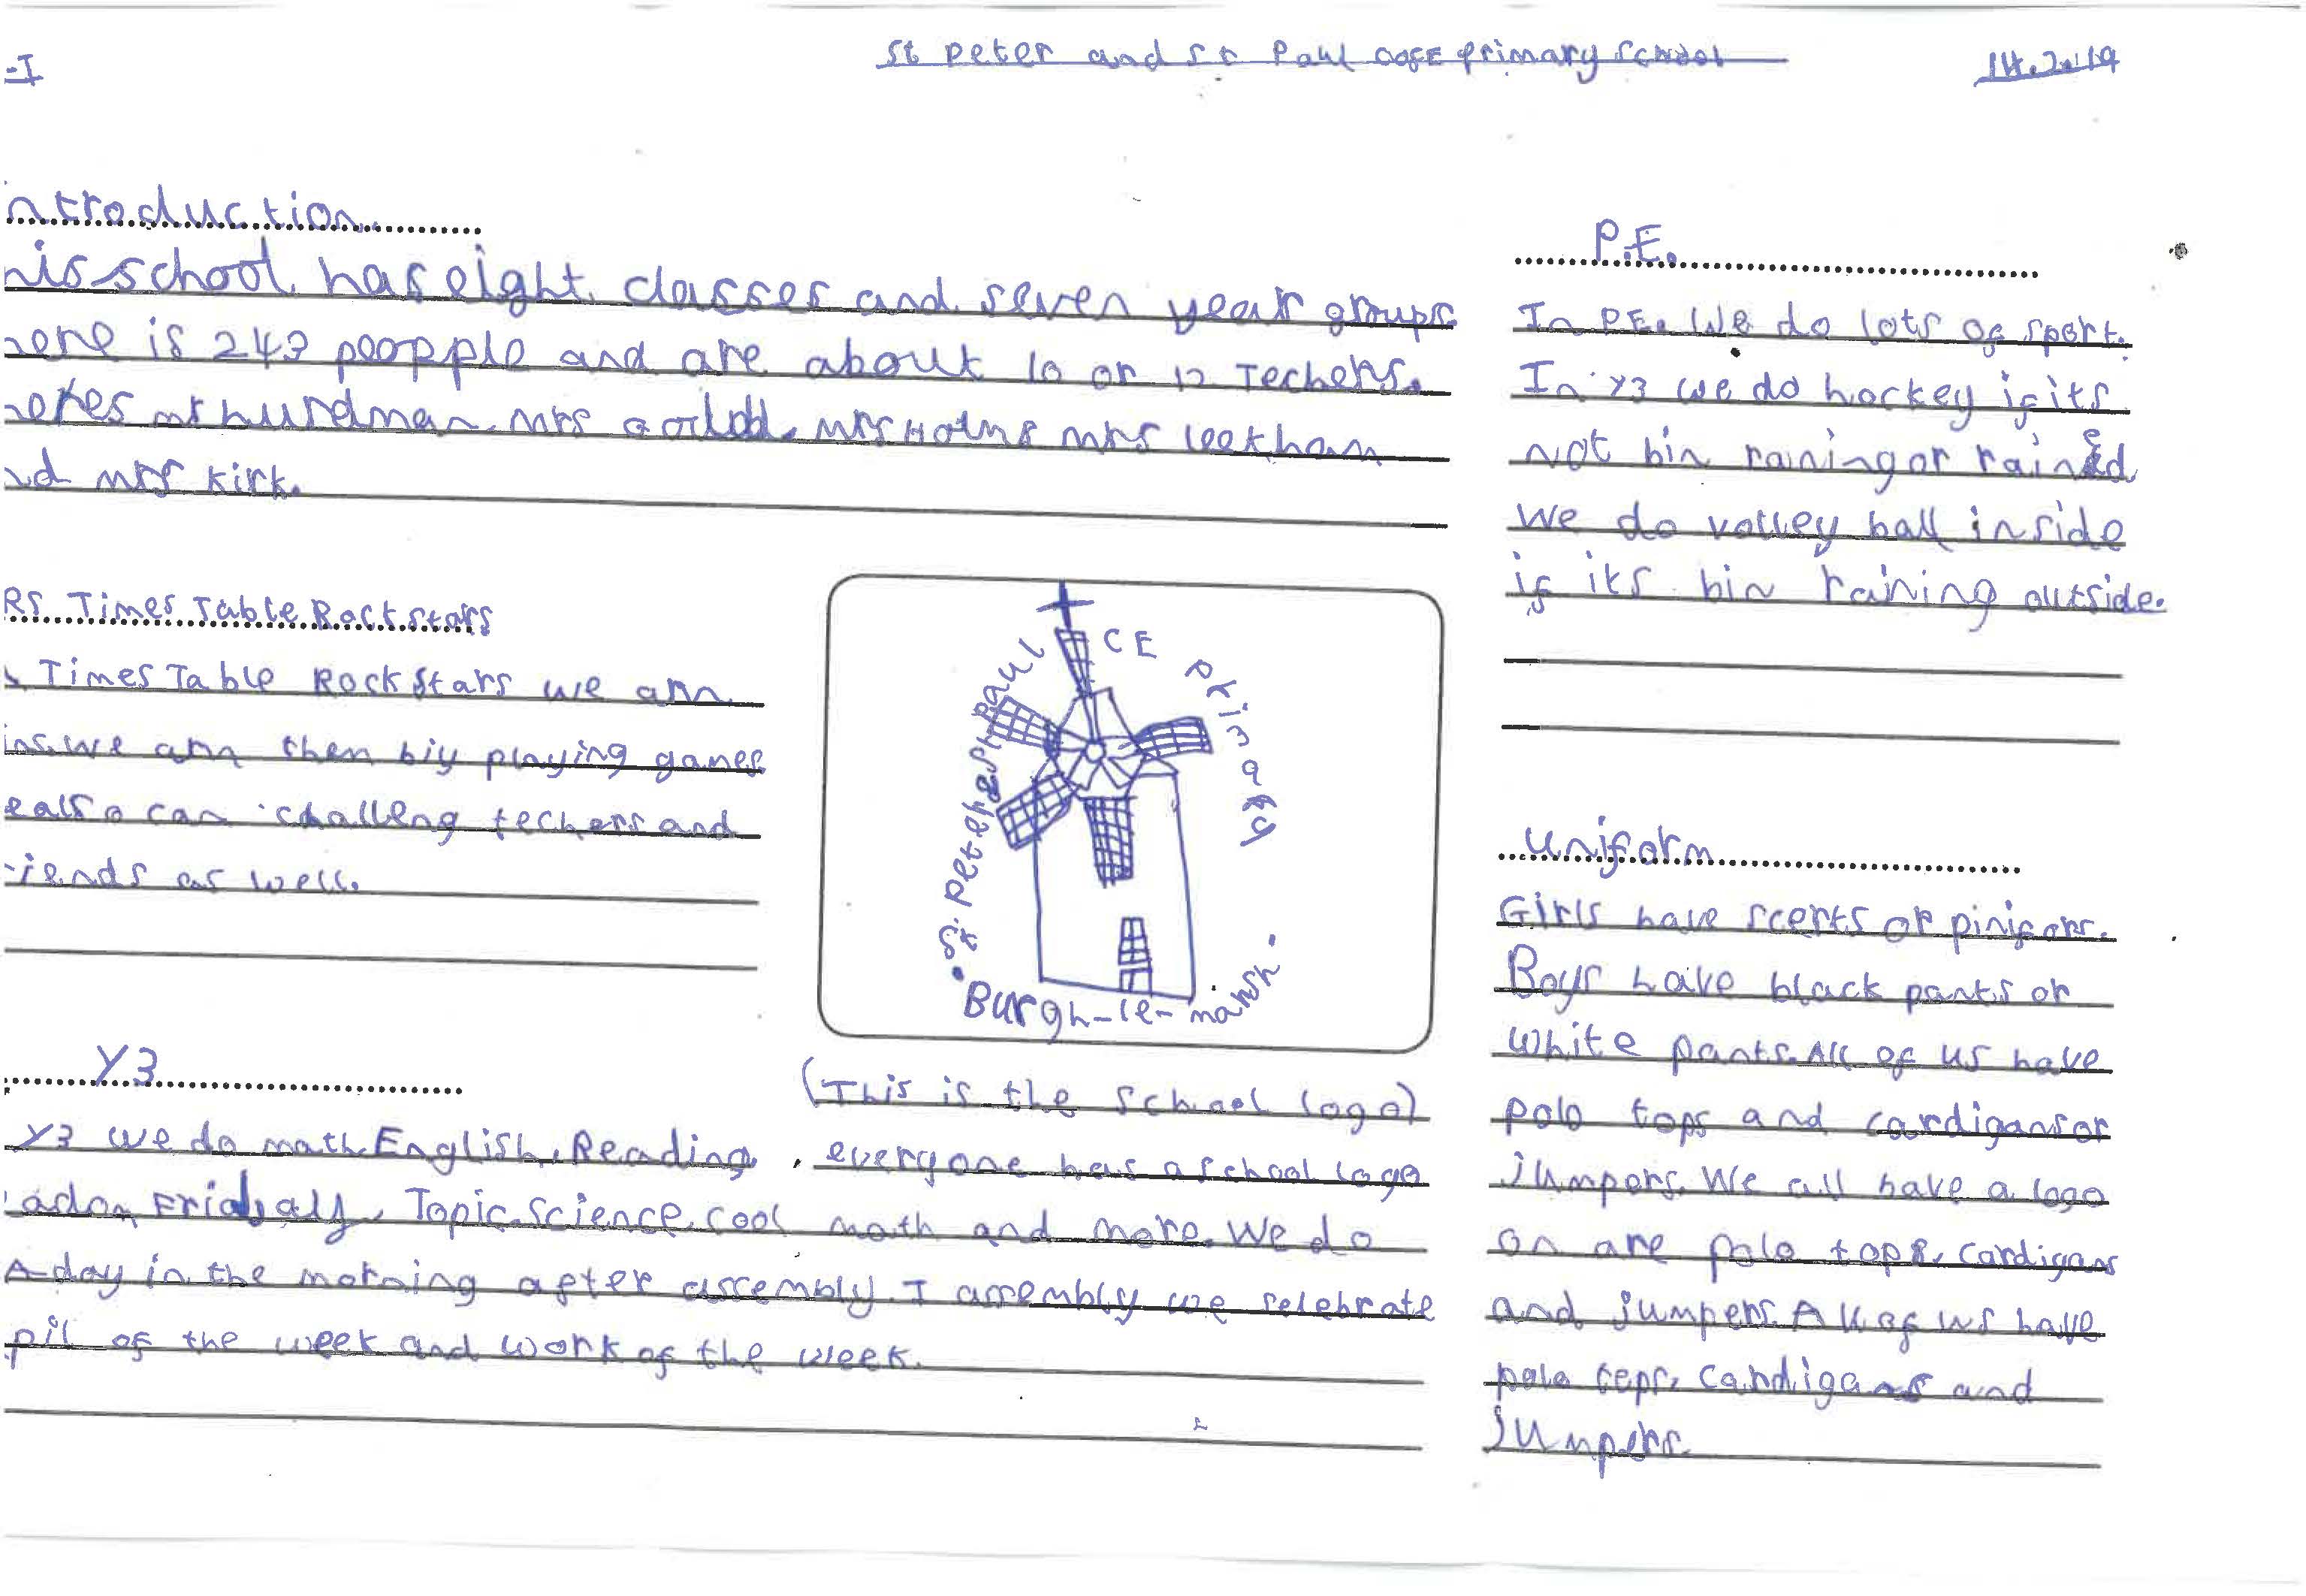 -I
St Peter and St Paul COFE primary School
14.2.19
ntroduction
his school has eight classes and seven year groups.
here is 243 peopple and are about 10 or 12 Techers.
mr hurdman mrs mrs
nd mrs Kirk.
RS Times Table Rockstars
Times Table Rock Stars we
ins. we then biy playing games
e also can challeng techers and
riends as well.
St. Peter & St Paul CE Primary
Burgh-le-marsh
Y3
Y3 we do math, English, Reading,
Friday, Topic, Science, cool math and more. We do
A day in the morning after assembly. I assembly we selebrate
pil of the week and work of the week.
(This is the school logo)
everyone has a school logo
P.E.
In P.E. We do lots of sport.
In Y3 we do hockey if its
not bin raining or rained
We do volley ball inside
if its bin raining outside.
Uniform
Girls have scerts or pinifors.
Boys have black pants or
white pants. All of us have
polo tops and cardigans or
jumpers. We all have a logo
on are polo tops, cardigans
and jumpers. All of us have
polo tops, cardigans and
jumpers.